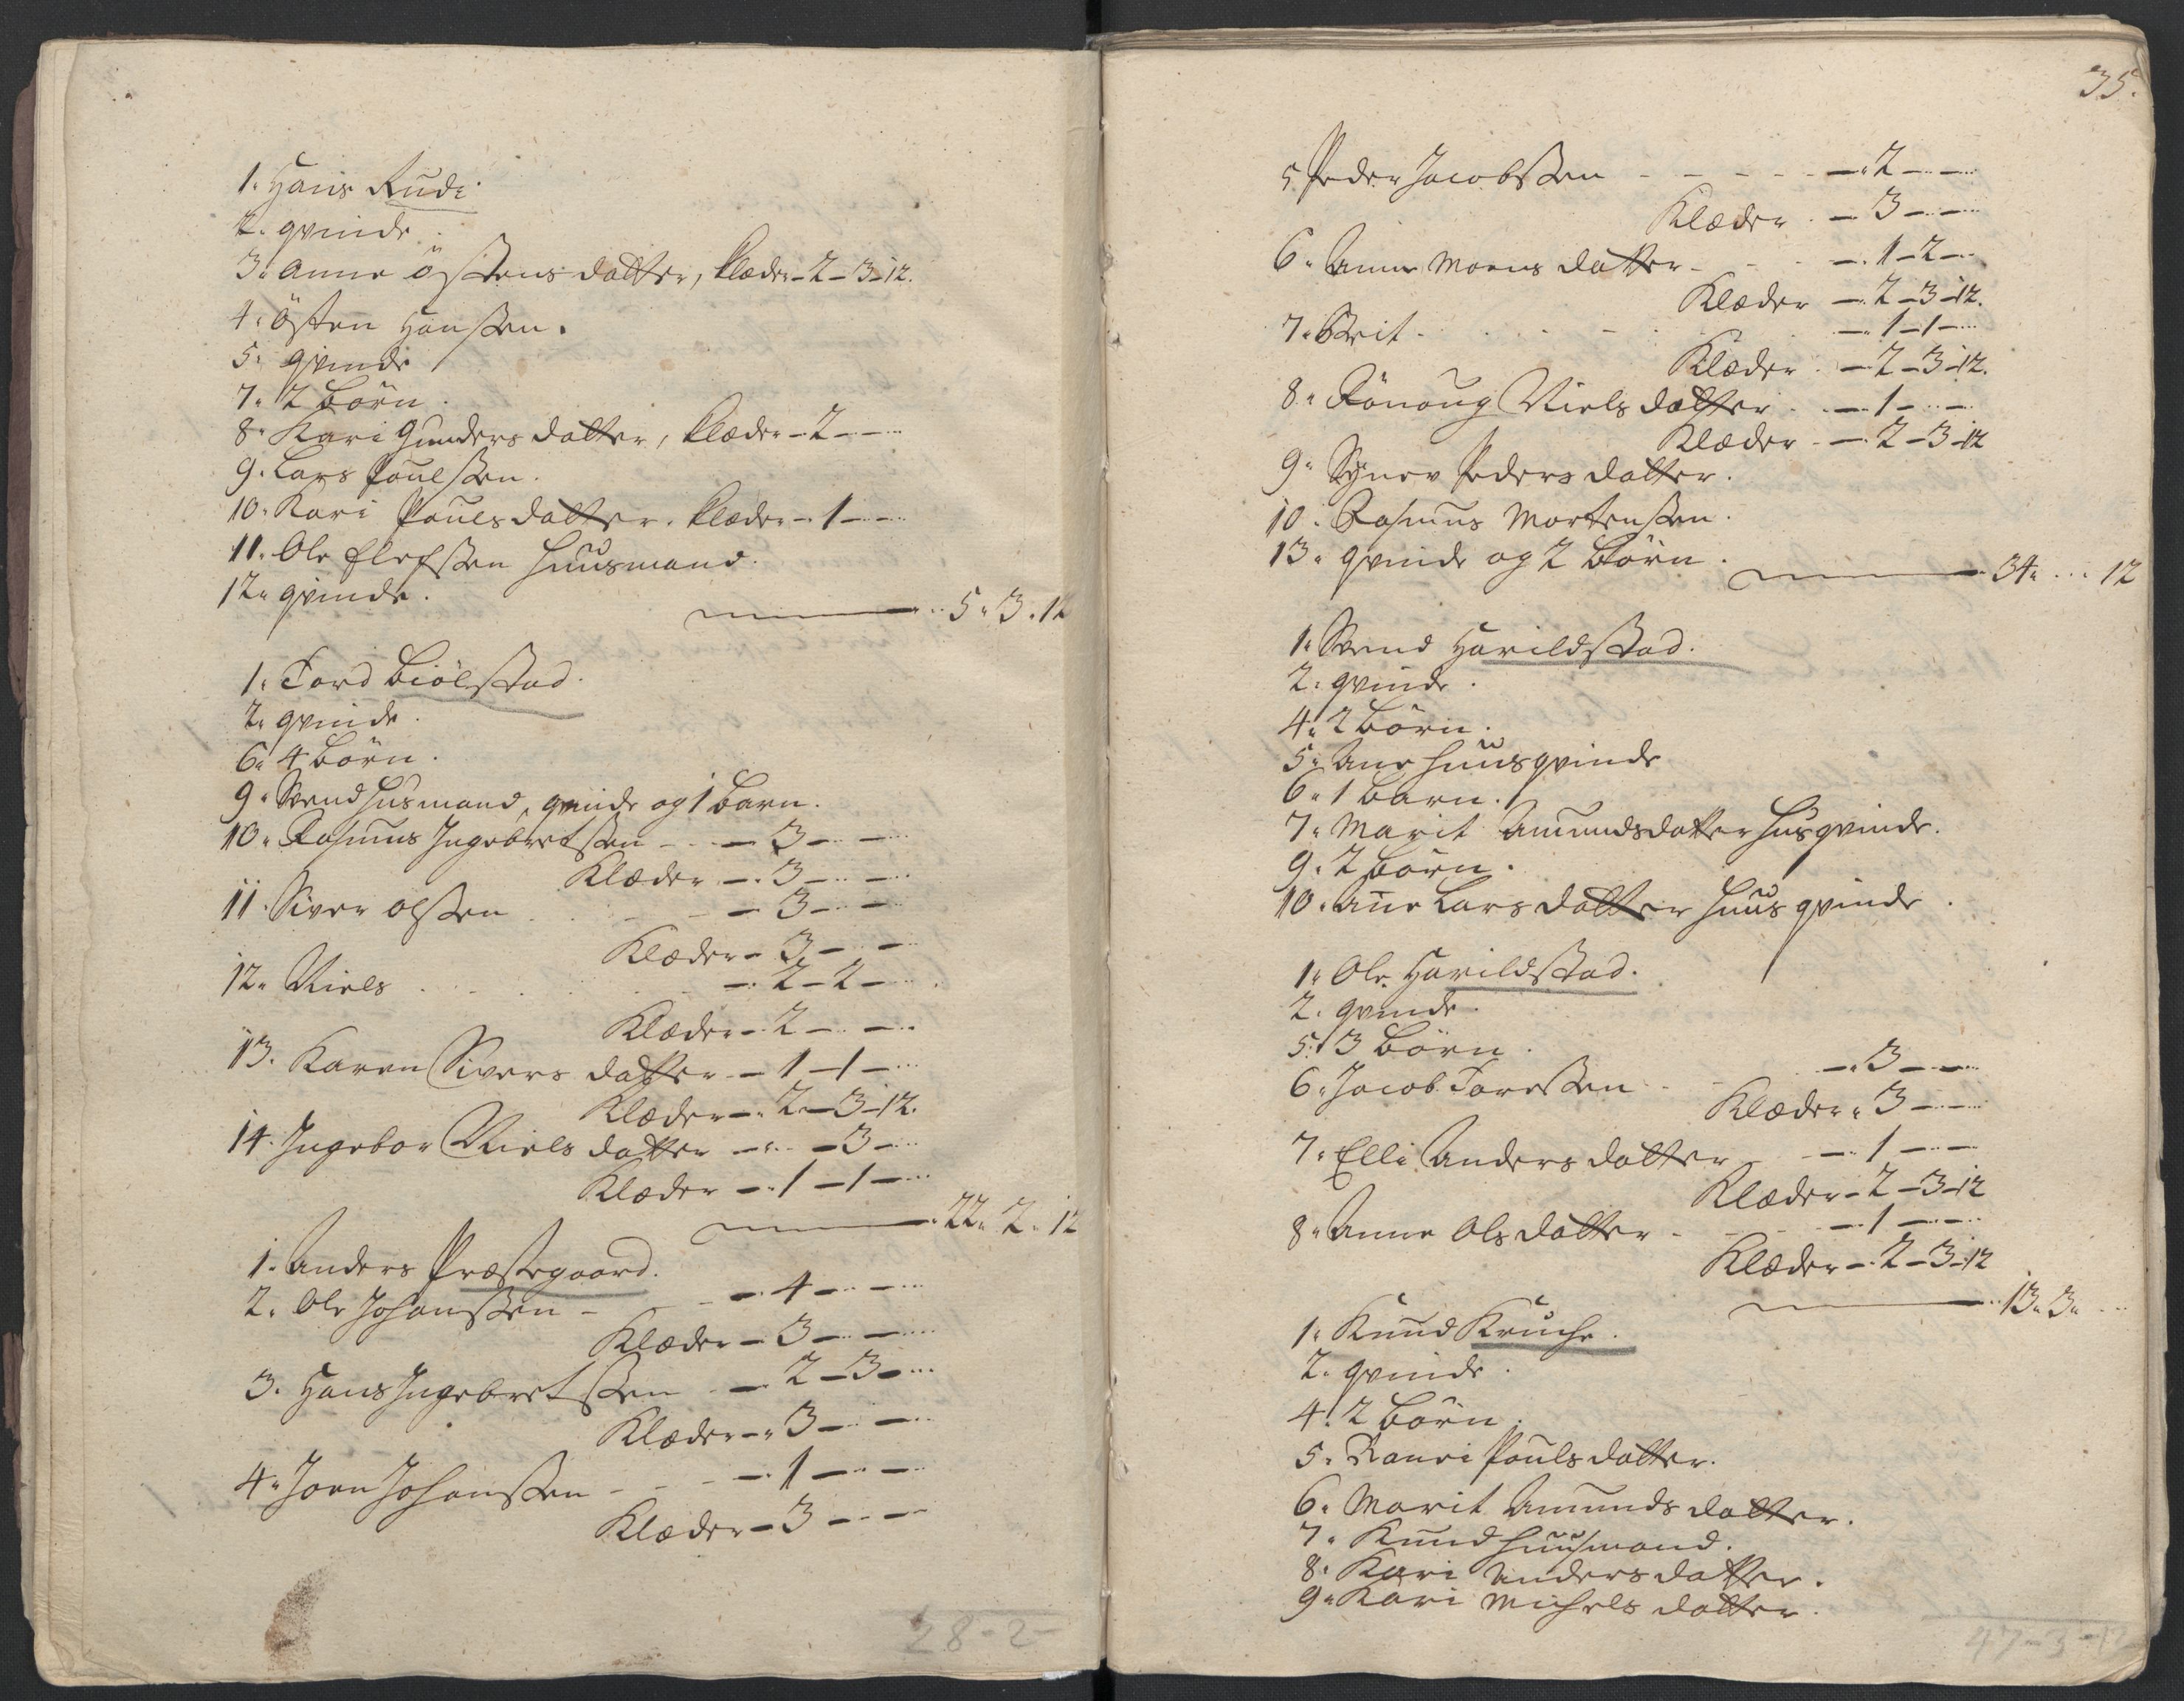 1. Hans Rudi
2. qvinde.
3. Anne Östens datter, klæder - 2 - 3 - 12.
4. Östen Hanssen.
5. qvinde
7. 2 börn.
8. Kari Gunders datter, klæder - 2 - -
9. Lars Poulssen.
10. Kari Pouls datter. klæder - 1 - -
11. Ole Elefssen Huusmand.
12. qvinde.
5. 3. 12
1. Tord Biölstad.
2. qvinde.
6. 4 börn.
9. Svend Husmand, qvinde og 1 barn.
10. Rasmus Ingebretssen - - 3 - -
Klæder - 3 - -
11. Siver olssen - 3 - -
Klæder - 3 - -
12. Niels - 2 - 2 -
Klæder - 2 - -
13. Karen Sivers datter - 1 - 1 -
Klæder - 2 - 3 - 12.
14. Ingebor Niels datter - - 3 -
Klæder - 1 - 1 -
22. 2. 12
1. Anders Præstegaard.
2. Ole Johanssen - - 4 - -
Klæder - 3 - -
3. Hans Ingebretssen - 2 - 3 -
Klæder - 3 - -
4. Joen Johanssen - - 1 - -
Klæder - 3 - -
28 - 2 -
35.
5 Peder Jacobssen - - - - 2 - -
Klæder - 3 - -
6. Anne Moens datter - - 1 - 2 -
Klæder - 2 - 3 - 12.
7. Berit - - 1 - 1 -
Klæder - 2 - 3 - 12.
8. Rönoug Niels datter - 1 - -
Klæder - 2 - 3 - 12
9. Synev Peders datter.
10. Rasmus Mortenssen.
13. qvinde og 2 börn.
34. . . 12
1. Svend Harildstad.
2. qvinde.
4. 2 börn.
5. Ane huusqvinde
6. 1 barn.
7. Marit Amundsdatter husqvinde.
9. 2 börn.
10. Ane Lars datter huus qvinde.
1. Ole Harildstad.
2. qvinde.
5. 3 börn.
6. Jacob Toressen - 3 - -
Klæder - 3 - -
7. Elli Anders datter - 1 - -
Klæder - 2 - 3 - 12
8. Anne Ols datter - - 1 - -
Klæder - 2 - 3 - 12
13. 3.
1. Knud Kruche.
2. qvinde.
4. 2 börn.
5. Ranei Pouls datter.
6. Marit Amunds datter.
7. Knud huusmand.
8. Kari Anders datter.
9. Kari Michels datter.
47 - 3 - 12